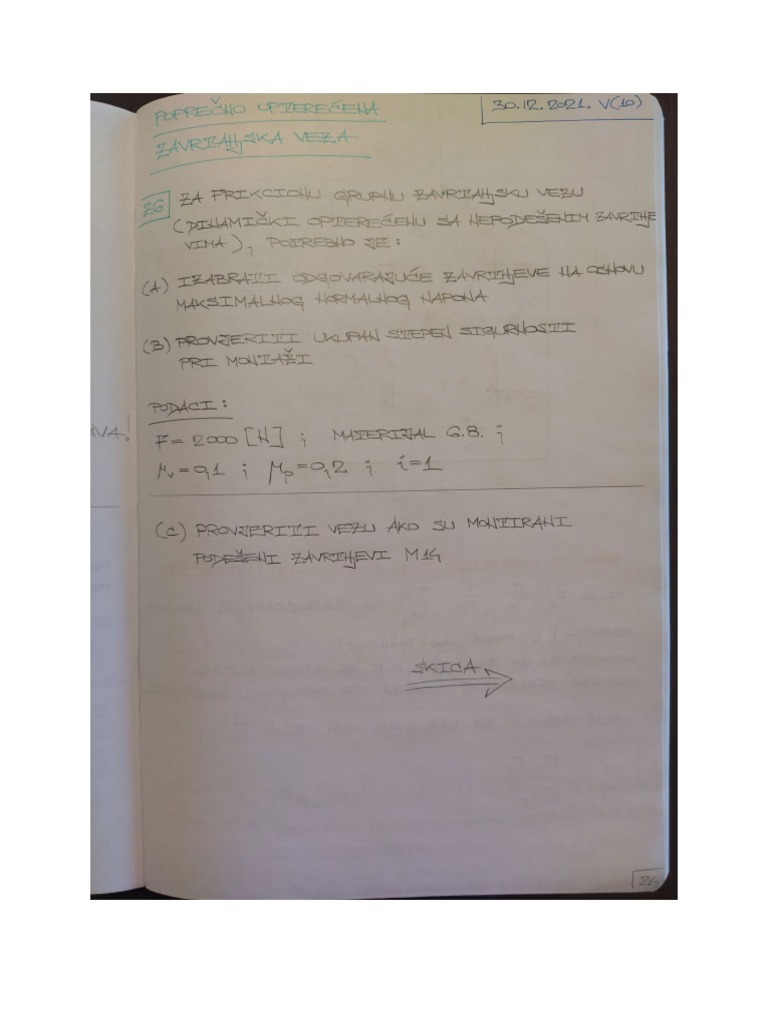 POPREČNO OPTEREĆENA
30.12.2021. V(10)
ZAVRTANJSKA VEZA
Z6 ZA FRIKCIONU GRUPNU ZAVRTANJSKU VEZU
(DINAMIČKI OPTEREĆENU SA NEPODEŠENIM ZAVRTNJE
VIMA), POTREBNO JE:
(A) IZABRATI ODGOVARAJUĆE ZAVRTNJEVE NA OSNOVU
MAKSIMALNOG NORMALNOG NAPONA
(B) PROVJERITI UKUPAN STEPEN SIGURNOSTI
PRI MONTAŽI
PODACI:
F = 2000 [N] ; MATERIJAL 6.8. ;
μv = 0,1 ; μp = 0,2 ; i = 1
(C) PROVJERITI VEZU AKO SU MONTIRANI
PODEŠENI ZAVRTNJEVI M14
SKICA